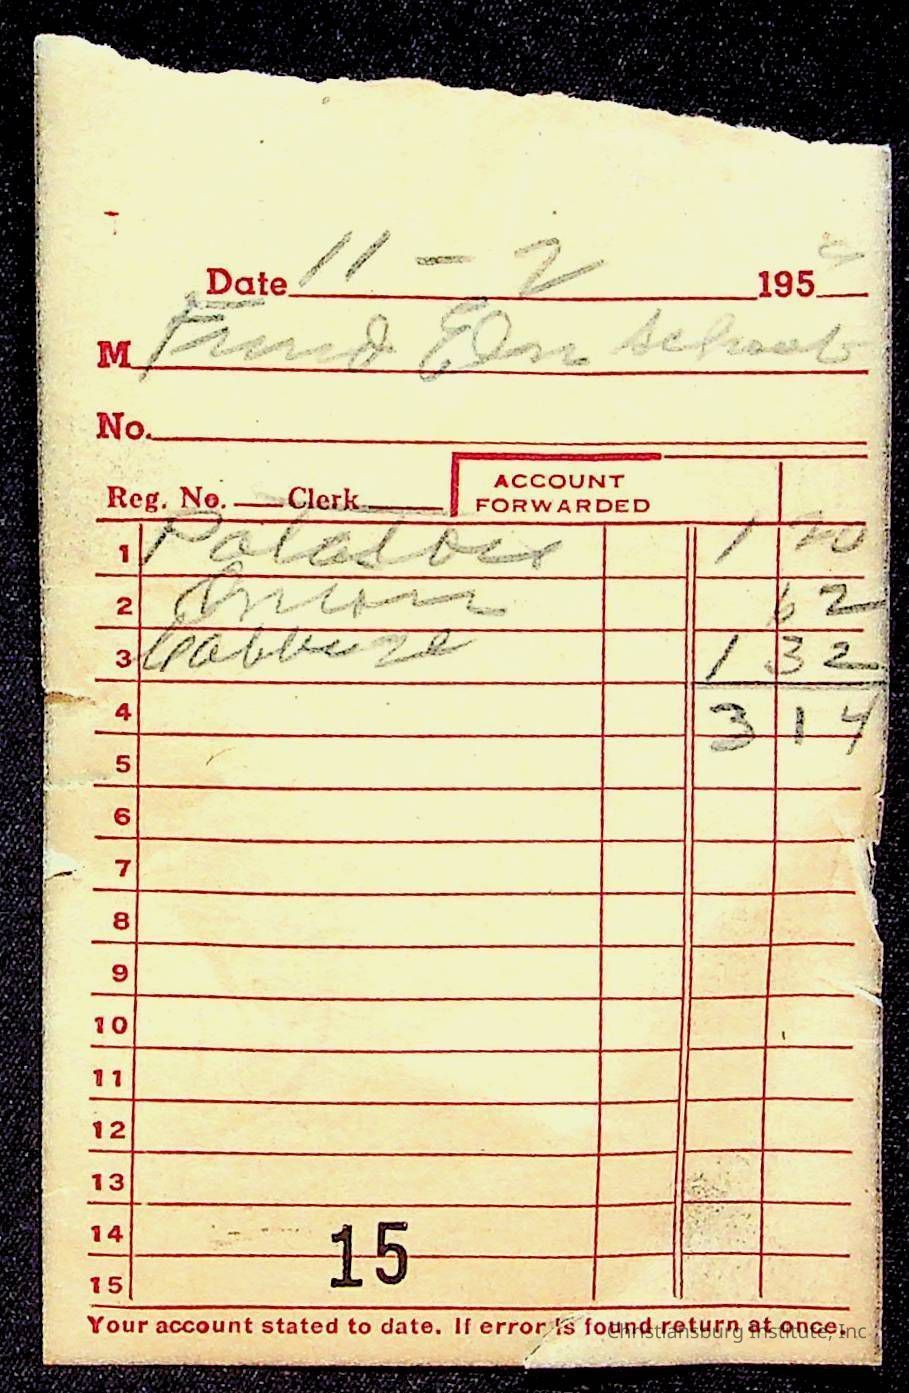 Date 11 - 2 195
M Friend Elem School
No.
Reg. No. Clerk
ACCOUNT
FORWARDED
1 Potatoes 1 20
2 Onions 62
3 Cabbage 1 32
4 3 14
5
6
7
8
9
10
11
12
13
14
15
15
Your account stated to date. If error is found return at once.
Christiansburg Institute, Inc